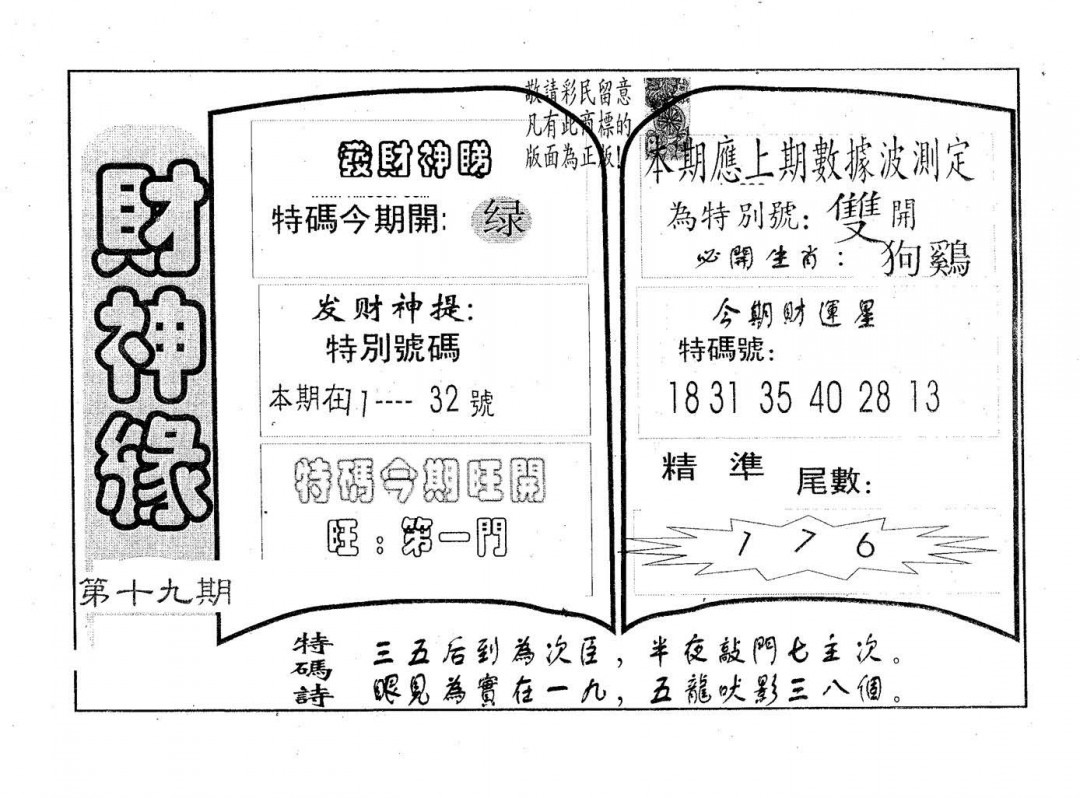 財神緣
第十九期
敬請彩民留意
凡有此商標的
版面為正版!
發財神睇
特碼今期開: 绿
发财神提:
特別號碼
本期在11---- 32號
特碼今期旺開
旺:第一門
本期應上期數據波測定
為特別號:雙開
必開生肖: 狗鷄
今期財運星
特碼號:
18 31 35 40 28 13
精準 尾數:
1 7 6
特碼詩
三五后到為次臣,半夜敲門七主次。
眼見為實在一九,五龍吠影三八個。